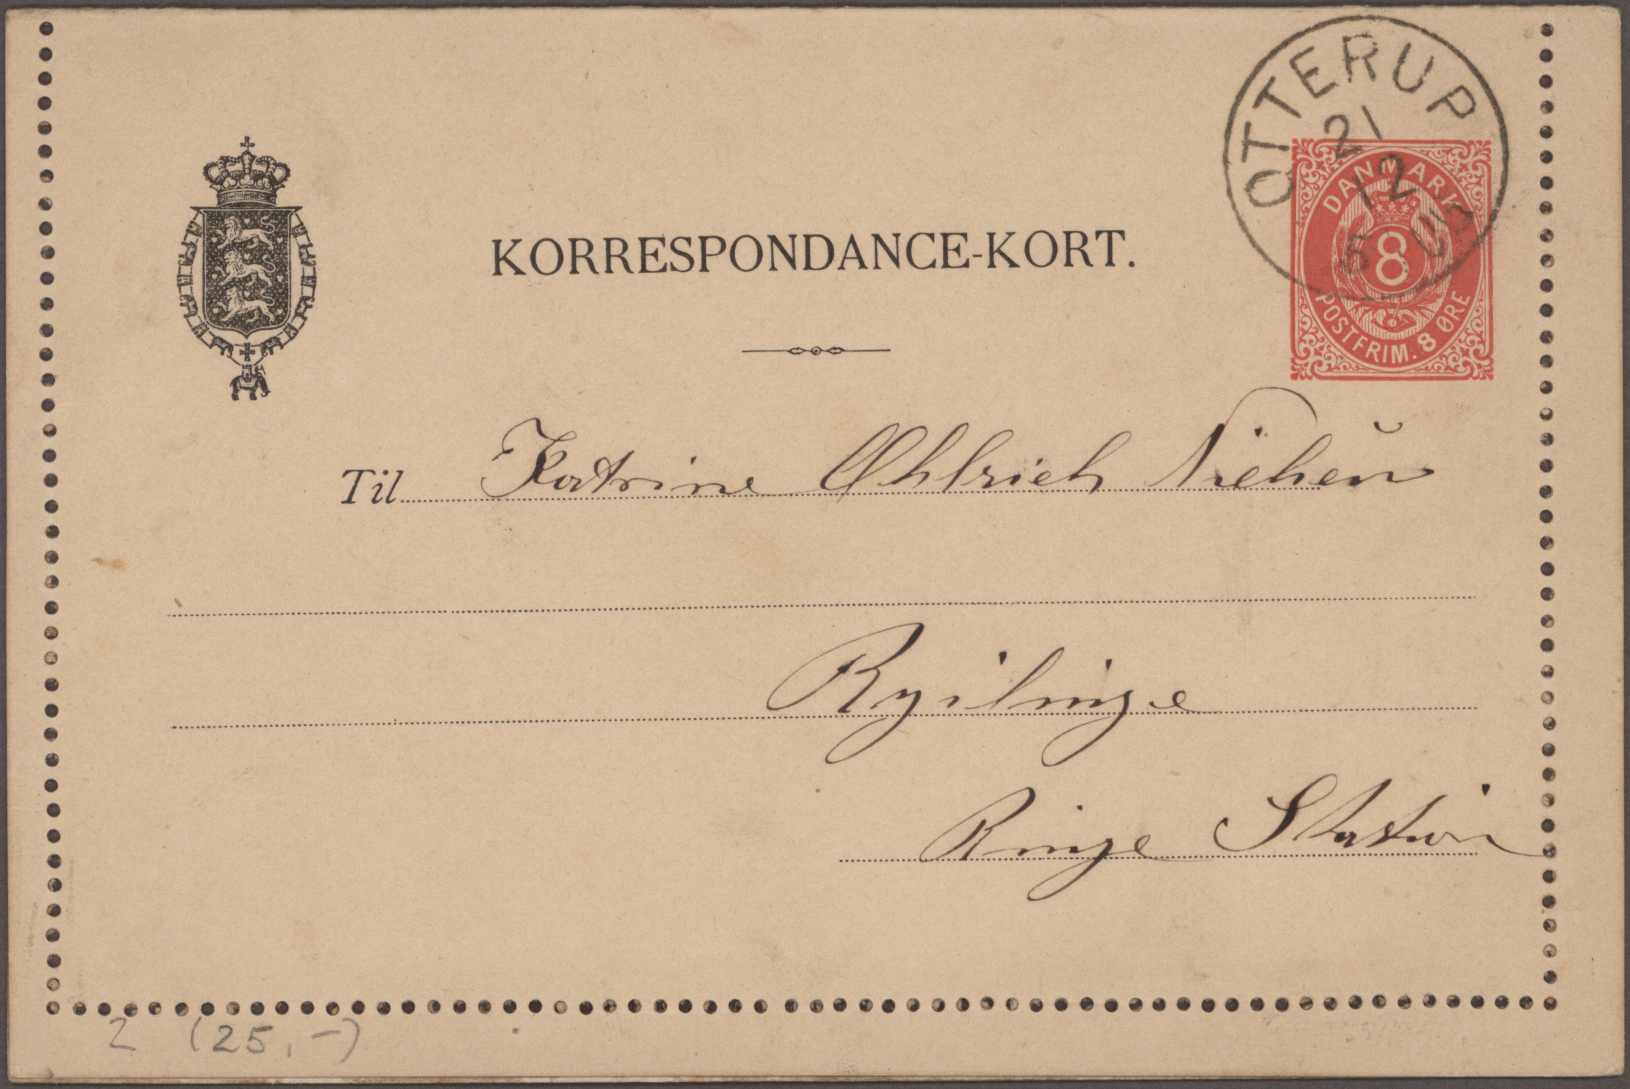 OTTERUP
21
12
DANMARK
8
POSTFRIM. 8 ØRE
KORRESPONDANCE-KORT.
Til Katrine Øhlrich
Ringe Station
2 (25,-)